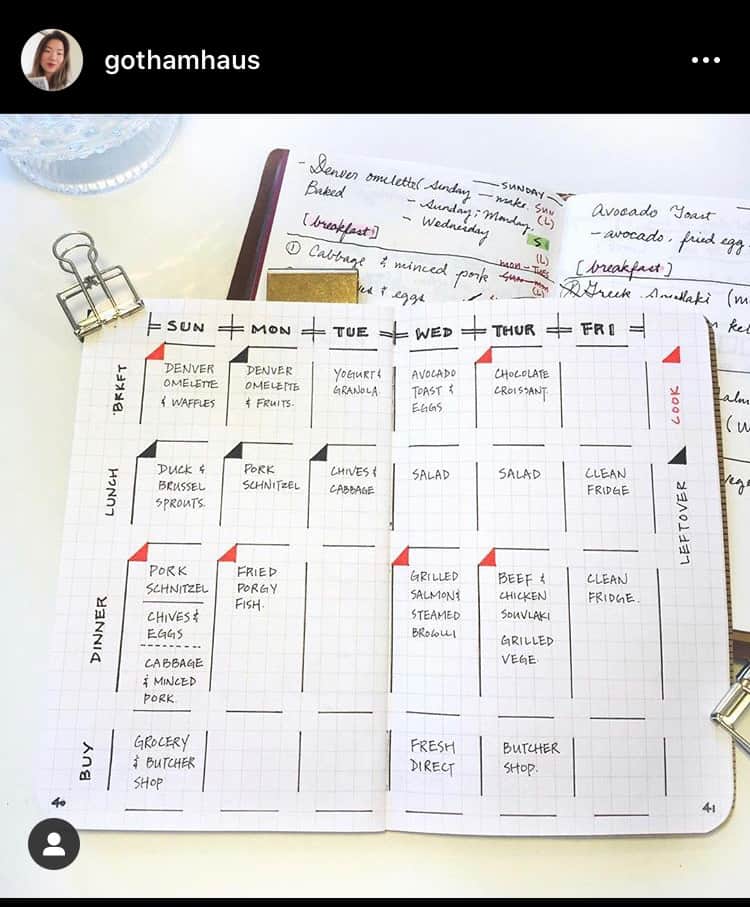 gothamhaus
- Denver omelette
Baked
[breakfast]
Sunday — make
- Sunday, Monday,
- Wednesday
— SUNDAY —
SUN
(L)
S
(L)
① Cabbage & minced pork
MON - TUES
SUN - MON
(L)
& eggs
Avocado Toast
- avocado, fried egg
[breakfast]
Greek Souvlaki
SUN MON TUE WED THUR FRI
BRKFT
DENVER
OMELETTE
& WAFFLES
DENVER
OMELETTE
& FRUITS.
YOGURT &
GRANOLA.
AVOCADO
TOAST &
EGGS
CHOCOLATE
CROISSANT.
COOK
LUNCH
DUCK &
BRUSSEL
SPROUTS.
PORK
SCHNITZEL
CHIVES &
CABBAGE
SALAD
SALAD
CLEAN
FRIDGE
LEFTOVER
DINNER
PORK
SCHNITZEL
CHIVES &
EGGS
CABBAGE
& MINCED
PORK.
FRIED
PORGY
FISH.
GRILLED
SALMON &
STEAMED
BROCCLI
BEEF &
CHICKEN
SOUVLAKI
GRILLED
VEGE.
CLEAN
FRIDGE.
BUY
GROCERY
& BUTCHER
SHOP
FRESH
DIRECT
BUTCHER
SHOP.
40
41